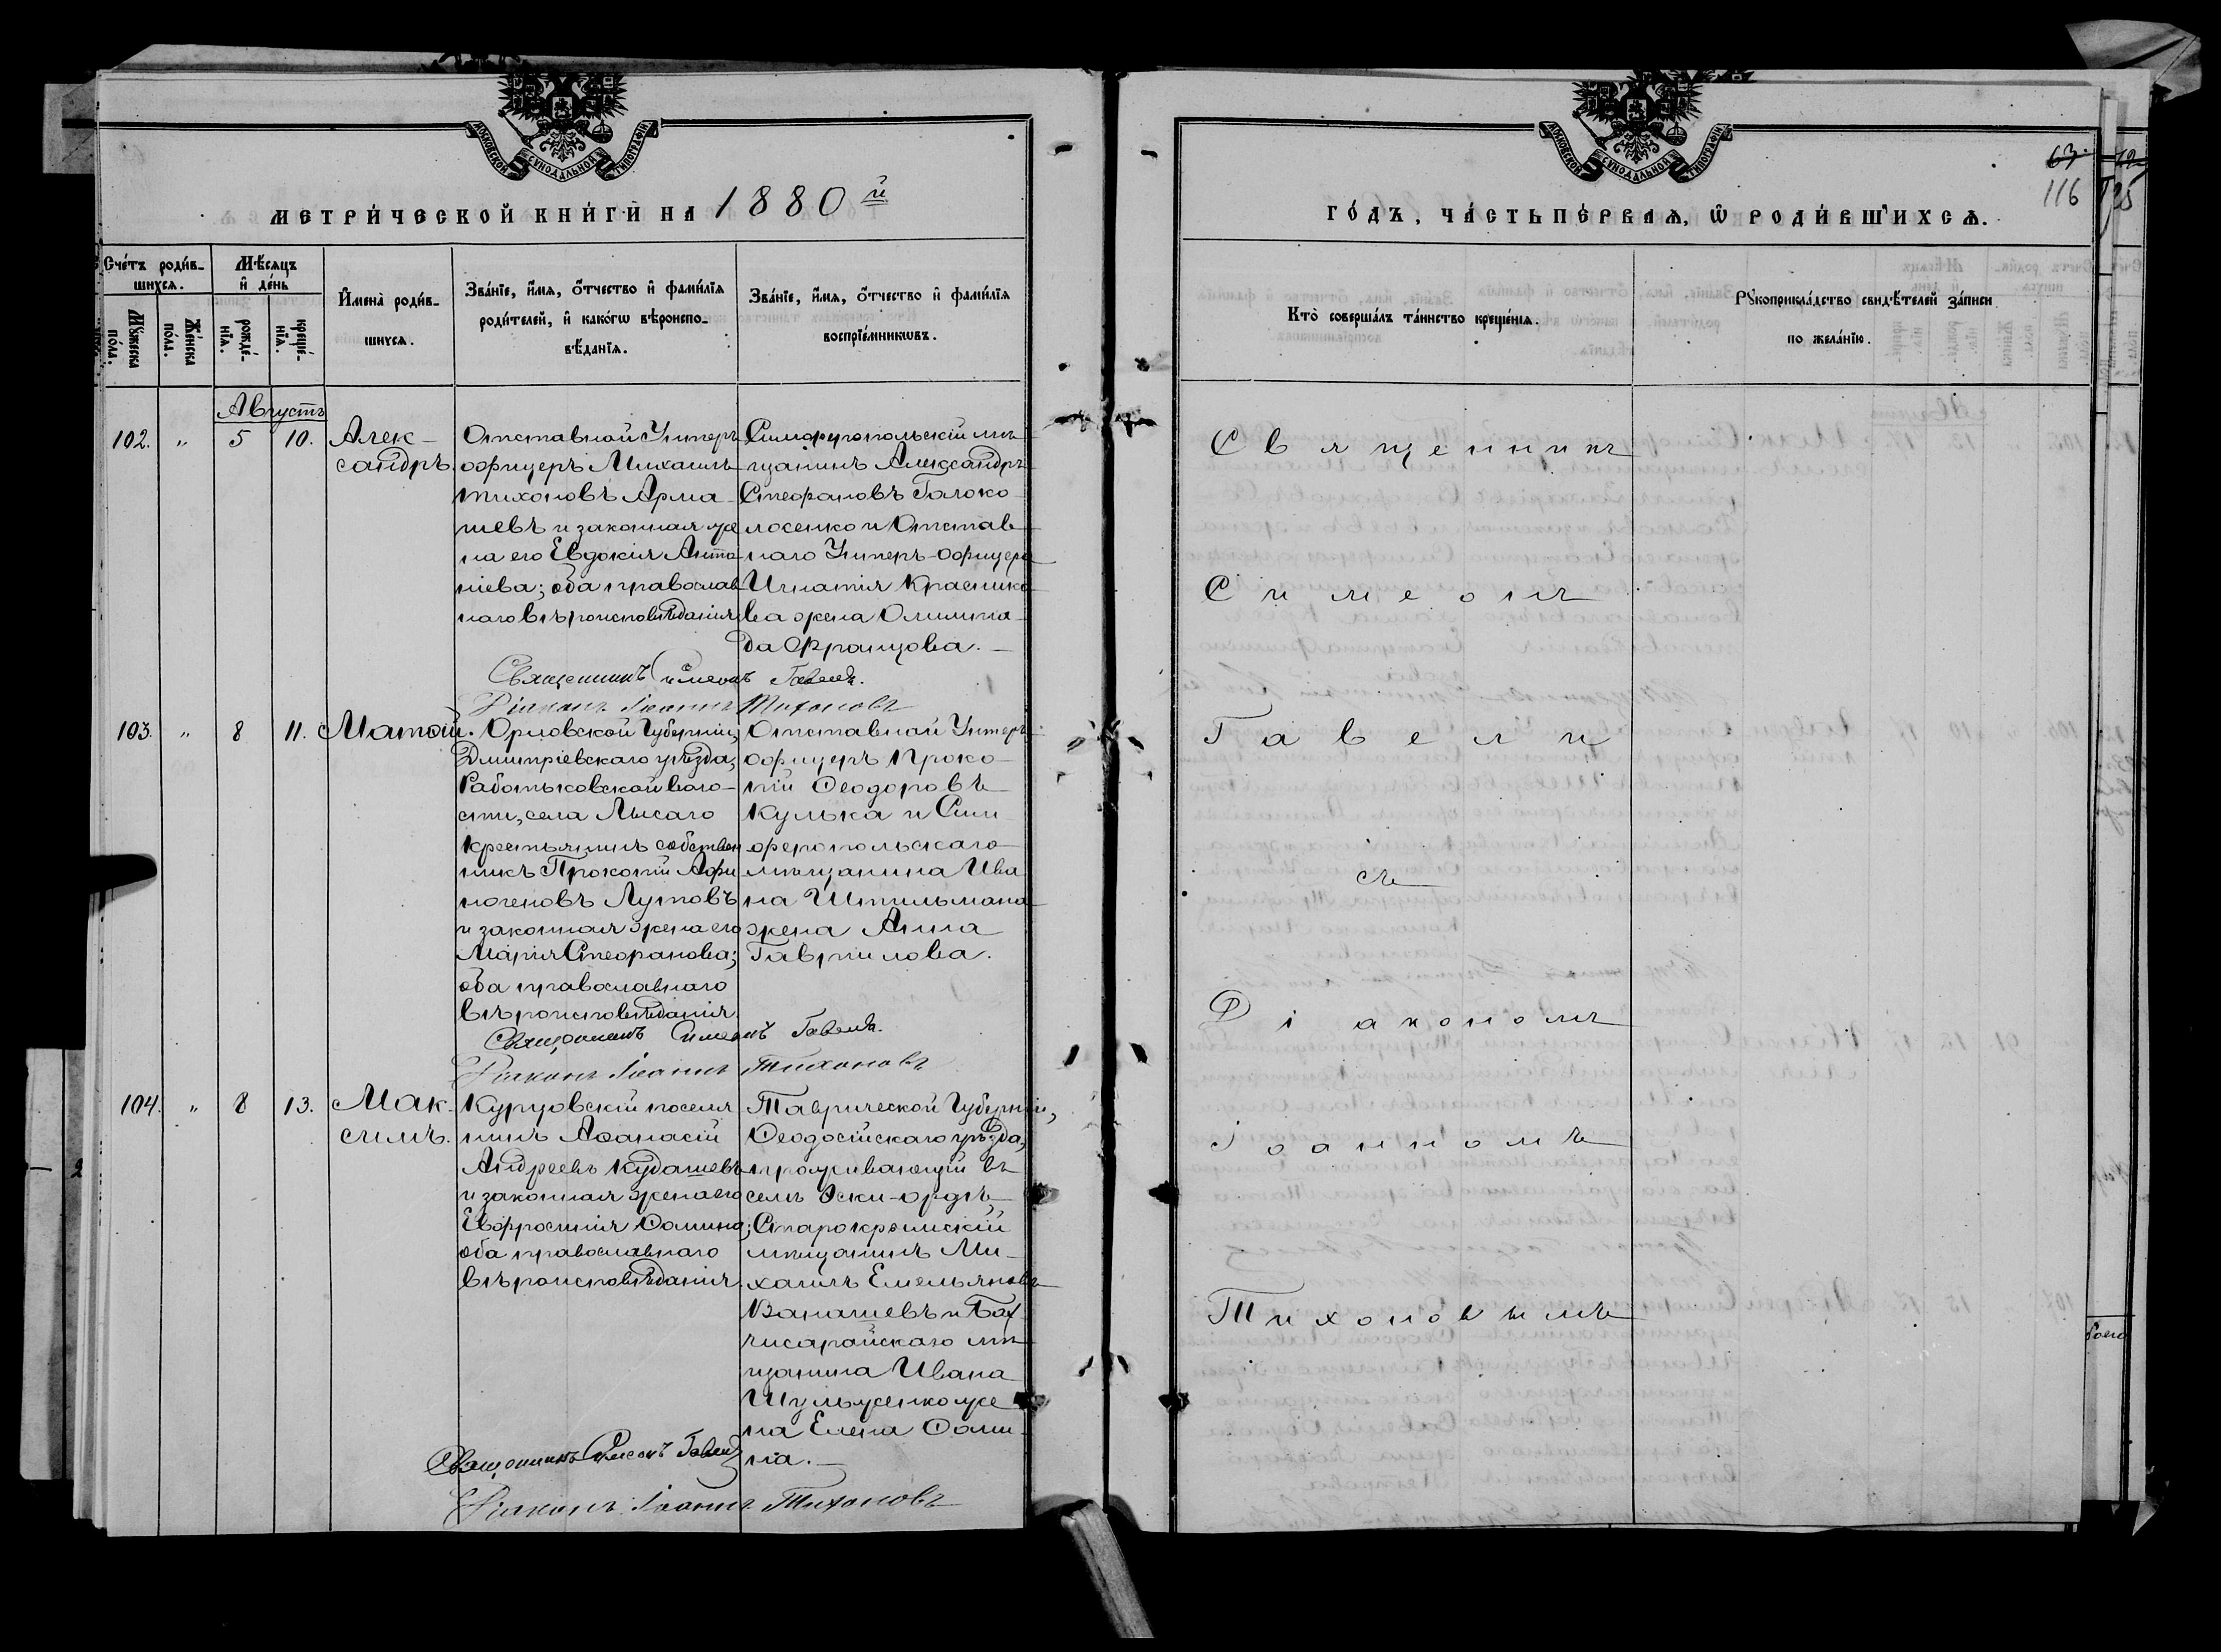 МОСКОВСКОЙ СѴНОДАЛЬНОЙ ТИПОГРАФІИ
МЕТРИ́ЧЕСКОЙ КНИ́ГИ НА 1880й
Сче́тъ роди́вшихся.
Мѣ́сяцъ и҆ де́нь
Мꙋ́жеска по́ла.
Же́нска по́ла.
рожде́нїя.
креще́нїя.
И҆мена̀ роди́вшихся.
Зва́нїе, и҆́мя, ѻ҆́тчество и҆ фами́лїя
роди́телей, и҆ како́гѡ вѣроиспо-
вѣ́данїя.
Зва́нїе, и҆́мя, ѻ҆́тчество и҆ фами́лїя
воспрїе́мникѡвъ.
Августъ
102. " 5 10.
Алек-
сандръ.
Отставной Унтеръ
офицеръ Михаилъ
Тихоновъ Арма-
шевъ и законная же
на его Евдокія Анто
ніева; оба православ
наго вѣроисповѣданія
Симферопольскій мѣ-
щанинъ Александръ
Стефановъ Голоко-
лосенко и Отстав-
наго Унтеръ-офицера
Игнатія Краснико
ва жена Олимпіа-
да Францова.
Священникъ Симеонъ Гавели.
Діаконъ Іоаннъ Тихоновъ
103. " 8 11.
Матѳій.
Орловской Губерніи,
Дмитріевскаго уѣзда,
Работьковской воло-
сти, села Лысаго
крестьянинъ собствен
никъ Прокопій Афи
ногеновъ Лутовъ
и законная жена его
Марія Стефанова;
оба православнаго
вѣроисповѣданія
Отставной Унтеръ
офицеръ Проко-
пій Ѳеодоровъ
Кулька и Сим
феропольскаго
мѣщанина Ива
на Штильмана
жена Анна
Гавриилова.
Священникъ Симеонъ Гавели.
Діаконъ Іоаннъ Тихоновъ
104. " 8 13.
Мак-
симъ.
Курцовскій поселя
нинъ Аѳанасій
Андреевъ Кудашевъ
и законная жена его
Евфросинія Ѳомина;
оба православнаго
вѣроисповѣданія.
Таврической Губерніи,
Ѳеодосійскаго уѣзда,
проживающій въ
селѣ Эски-ордѣ
Старокрымскій
мѣщанинъ Ми-
хаилъ Емельяновъ
Ванашевъ и Бах-
чисарайскаго мѣ
щанина Ивана
Шульженко же
на Елена Ѳоми
на.
Священникъ Симеонъ Гавели
Діаконъ Іоаннъ Тихоновъ
МОСКОВСКОЙ СѴНОДАЛЬНОЙ ТИПОГРАФІИ
63.
116
125
ГО́ДЪ, ЧА́СТЬ ПЕ́РВАЯ, Ѡ҆ РОДИ́ВШИХСЯ.
Кто̀ соверша́лъ та́инство креще́нїя.
Рꙋкоприкла́дство свидѣ́телей за́писи
по жела́нїю.
Священникъ
Симеонъ
Гавели
съ
Діакономъ
Іоанномъ
Тихоновымъ